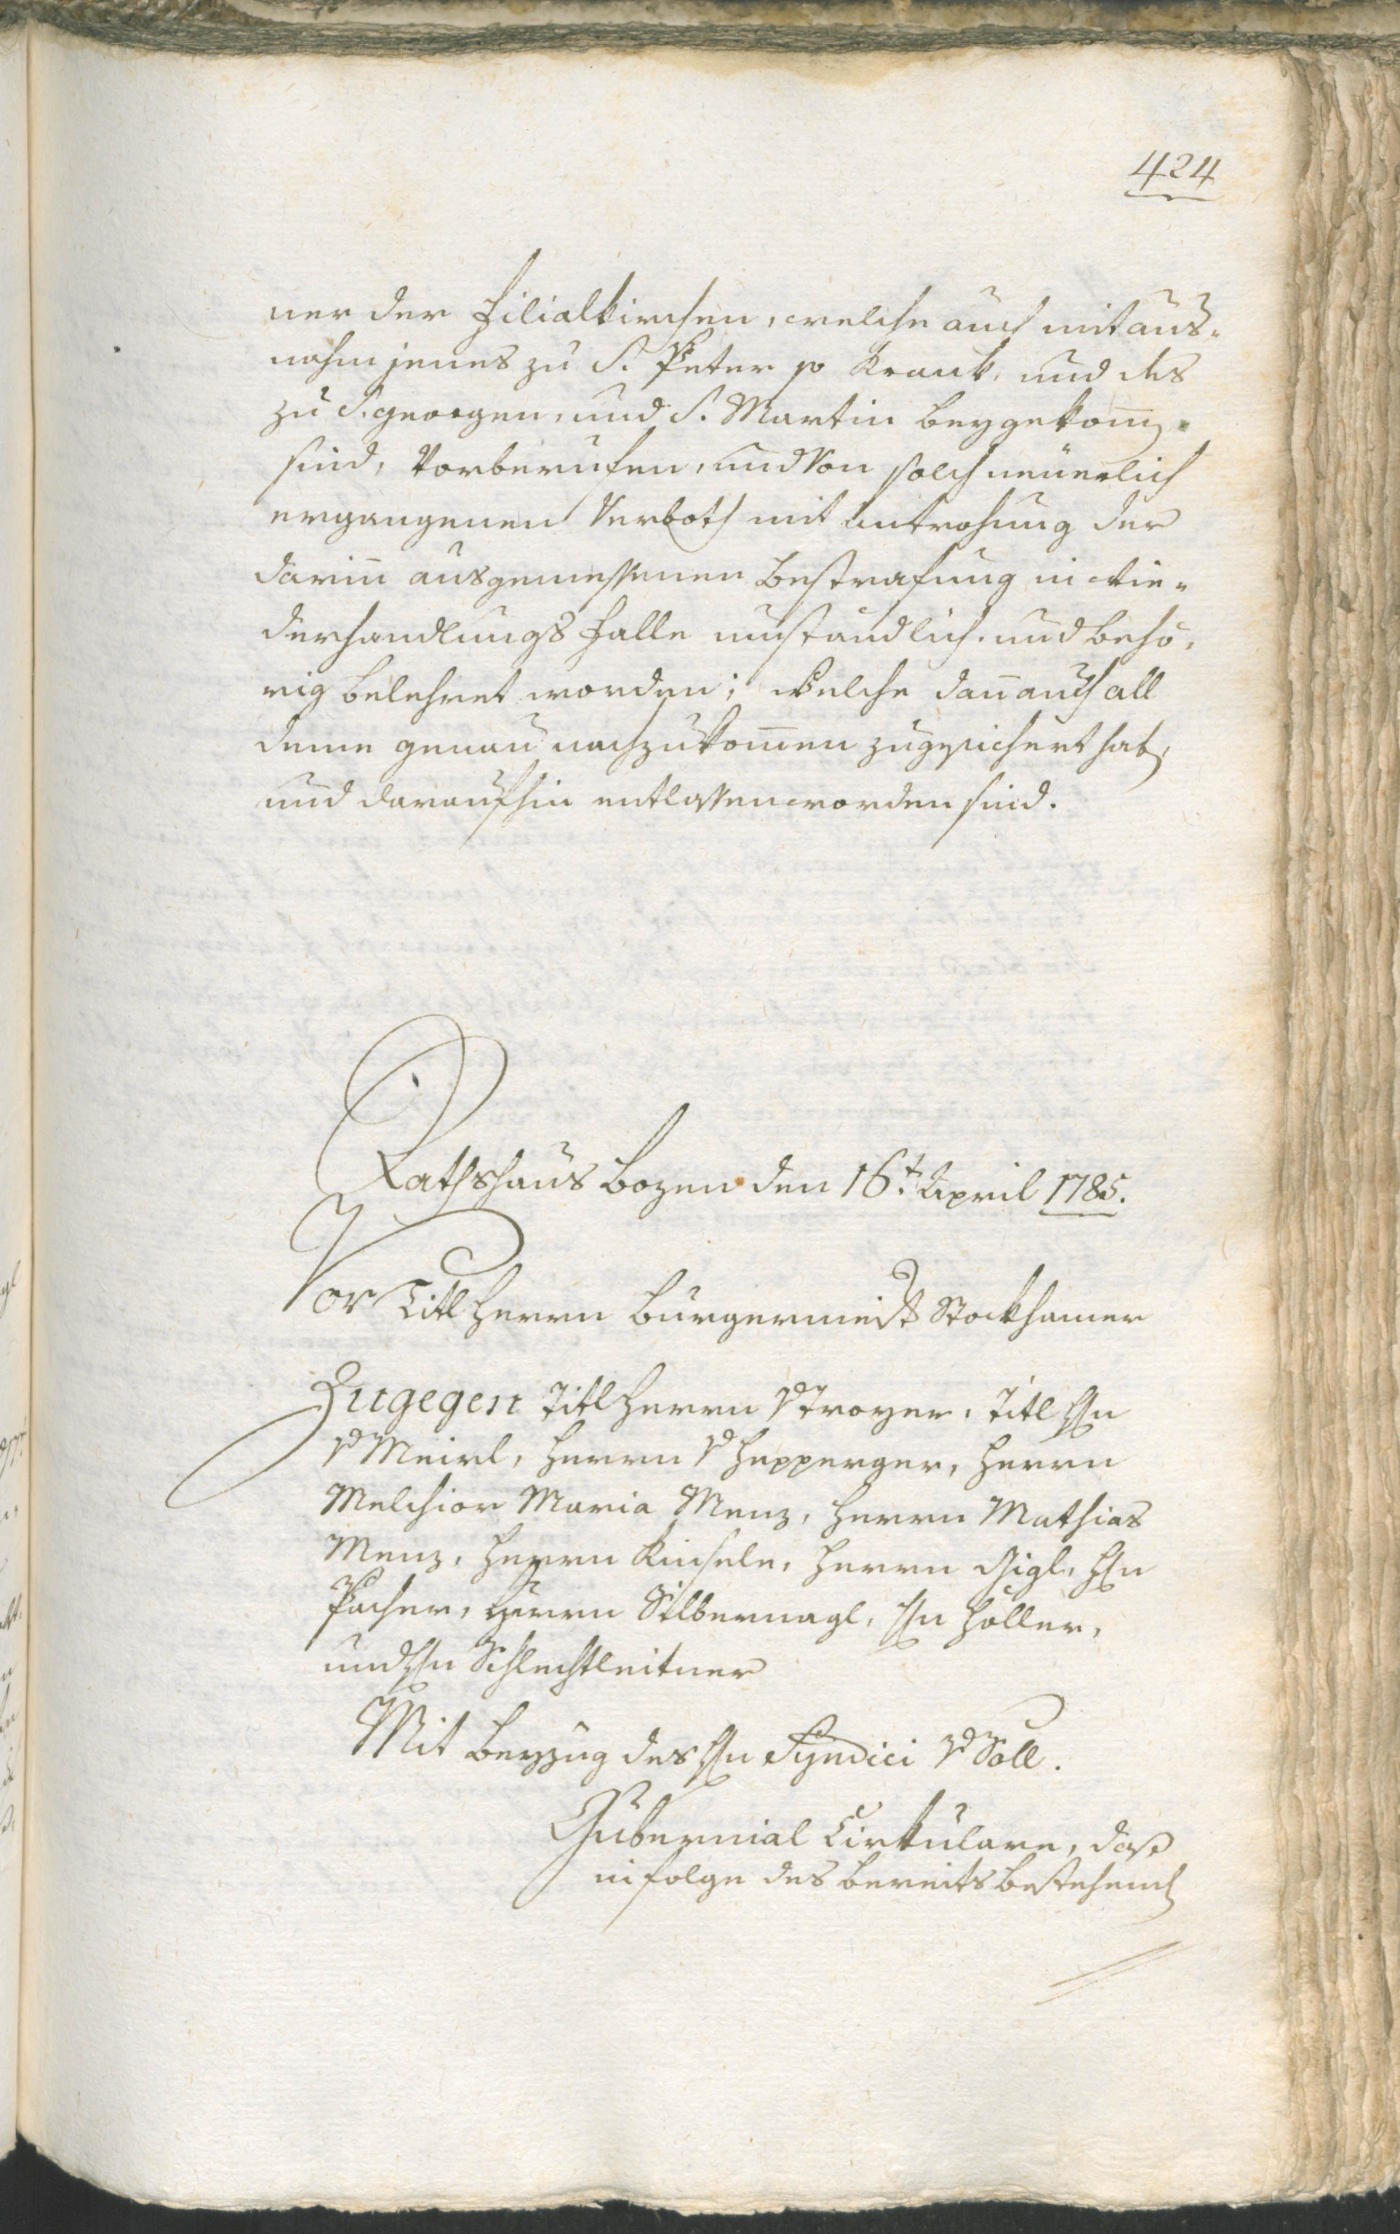 424
ner der Filialkirchen, welche auch mit aus-
nahm jenes zu S. Peter so krank, und des
zu S. georgen, und S. Martin beygekom̅
sind, Vorberufen, und von solch neuerlich
ergangenen Verboth mit Antrohung der
darinn ausgemessenen Bestrafung in Wie-
derhandlungs Falle umständlich, und behö-
rig belehret worden; Welche dan̅ auch all
deme genau nachzukom̅en zugesichert hab,
und daraufhin entlassen worden sind.
Rathshaus Bozen den 16.t April 1785.
Vor Titl Herrn Burgermeist Stockhamer
Zugegen Titl Herrn v Troyer, Titl Hn
v Meirl, Herrn v Hepperger, Herrn
Melchior Maria Menz, Herrn Mathias
Menz, Herrn Kinsele, Herrn Gigl, Hn
Pacher, Herrn Silbernagl, Hn Holler,
und Hn Schlechtleitner
Mit Beyzug des Hn Syndici v Söll.
Gubernial Cirkulare, dass
in folge des bereits bestehend